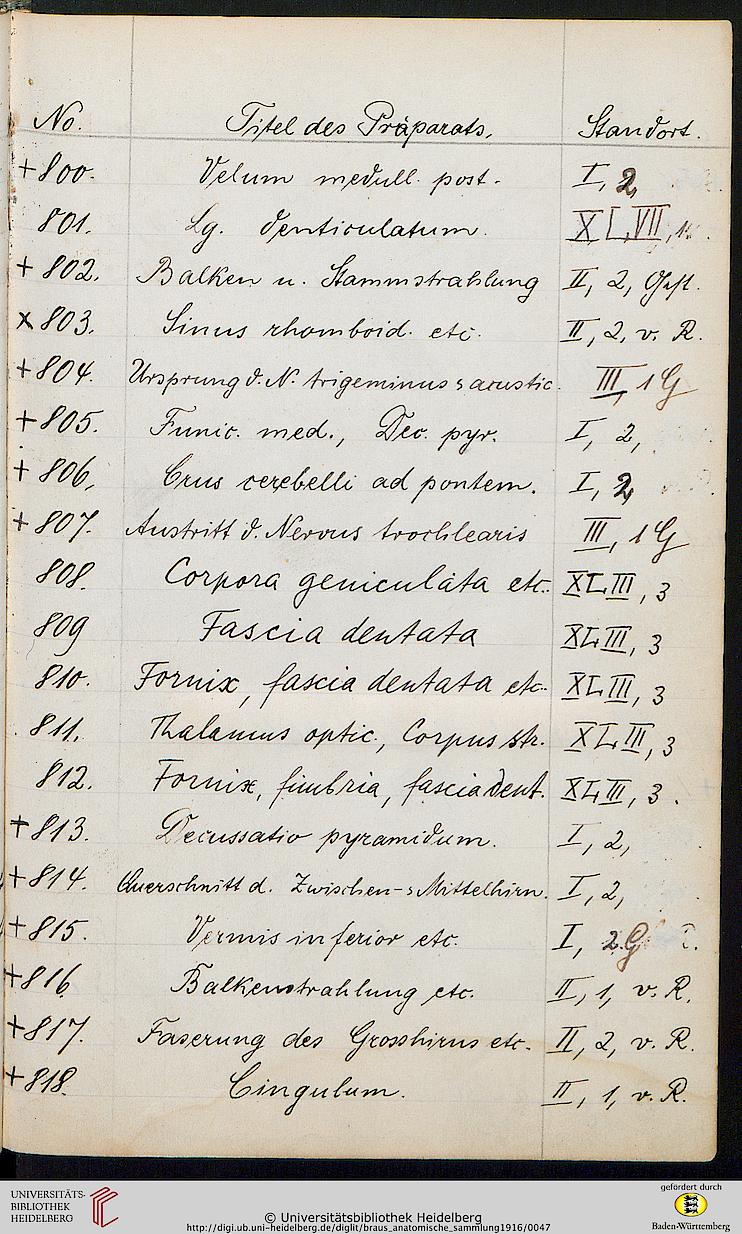 No. Titel des Präparats. Standort.
+800. Velum medull. post. I, 2,
801. Lg. denticulatum. XL,VII,
+802. Balken u. Stammstrahlung II, 2,
x803. Sinus rhomboid. etc. II, 2, v. R.
+804. Ursprung d. N. trigeminus s acustic. III, 1 G
+805. Funic. med., Dec. pyr. I, 2,
+806, Crus cerebelli ad pontem. I, 2
+807. Austritt d. Nervus trochlearis III, 1 G
808. Corpora geniculata etc. XLIII, 3
809 Fascia dentata XLIII, 3
810. Fornix, fascia dentata etc. XLIII, 3
811. Thalamus optic., Corpus str. XLIII, 3
812. Fornix, fimbria, fascia dent. XLIII, 3.
+813. Decussatio pyramidum. I, 2,
+814. Querschnitt d. Zwischen- s Mittelhirn. I, 2,
+815. Vermis inferior etc. I, 2 G
+816. Balkenstrahlung etc. II, 1, v. R.
+817. Faserung des Grosshirns etc. II, 2, v. R.
+818. Cingulum. II, 1, v. R.
UNIVERSITÄTS-
BIBLIOTHEK
HEIDELBERG
© Universitätsbibliothek Heidelberg
http://digi.ub.uni-heidelberg.de/diglit/braus_anatomische_sammlung1916/0047
gefördert durch
Baden-Württemberg